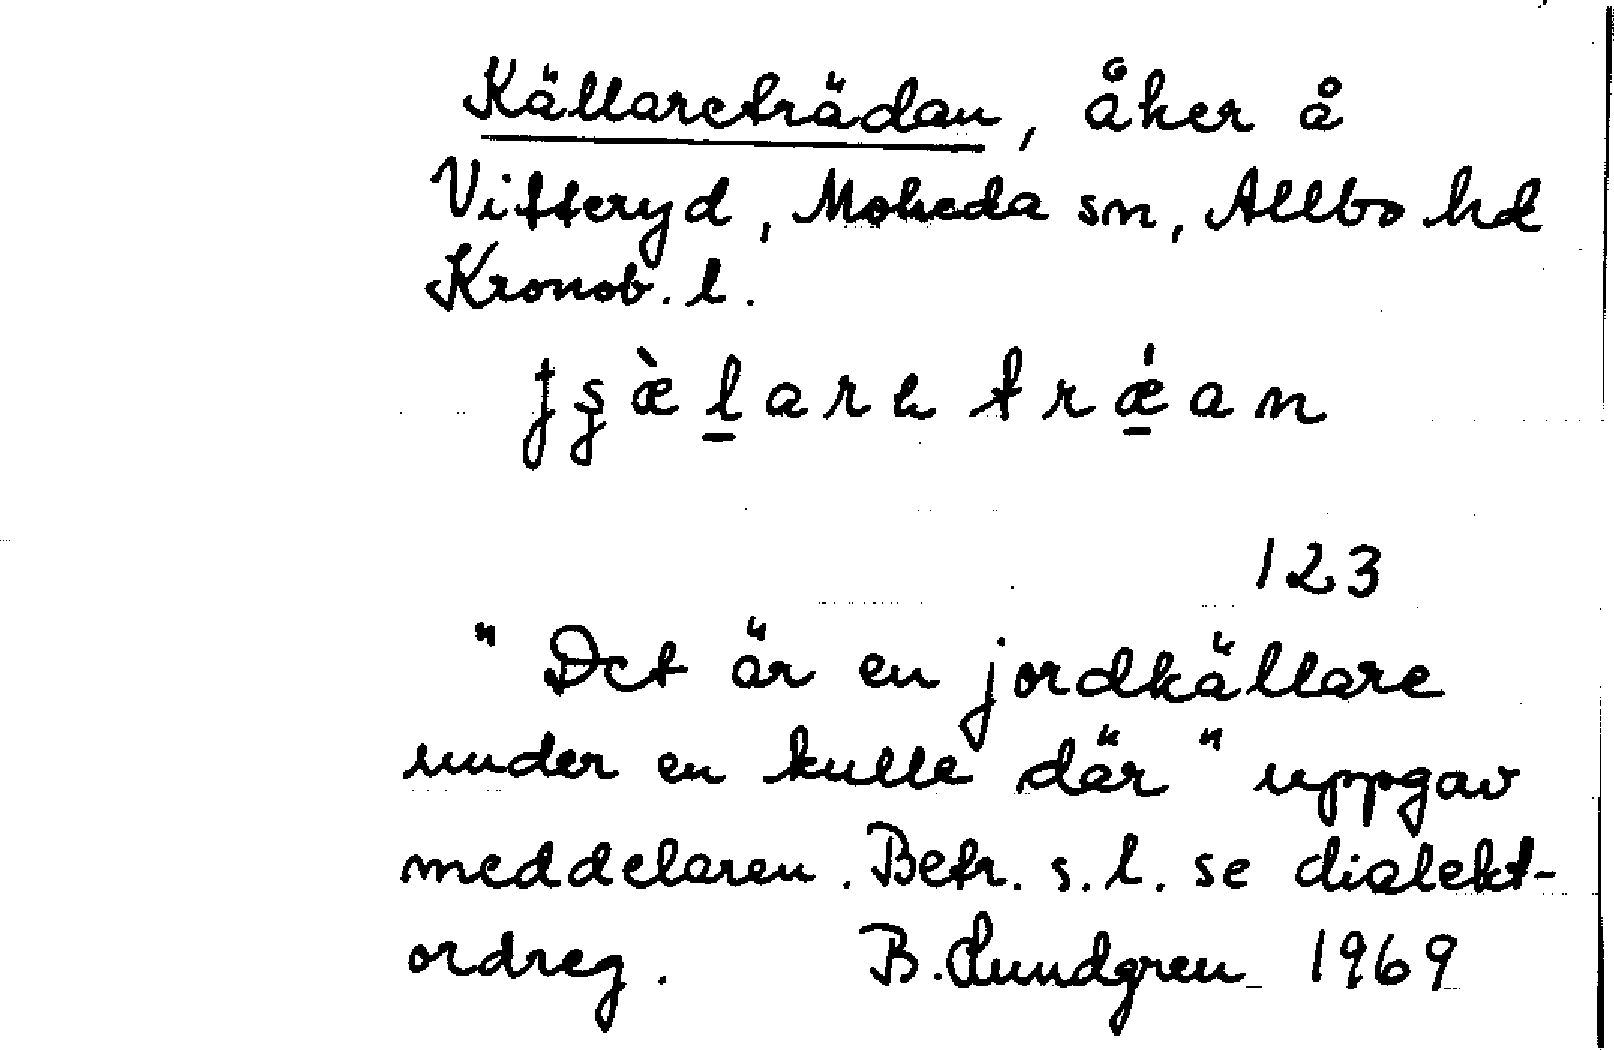 Källareträdan, åker å
Vitteryd, Moheda sn, Allbo hd
Kronob. l.
123
" Det är en jordkällare
under en kulle där " uppgav
meddelaren. Betr. s. l. se dialekt-
ordreg. B. Lundgren 1969